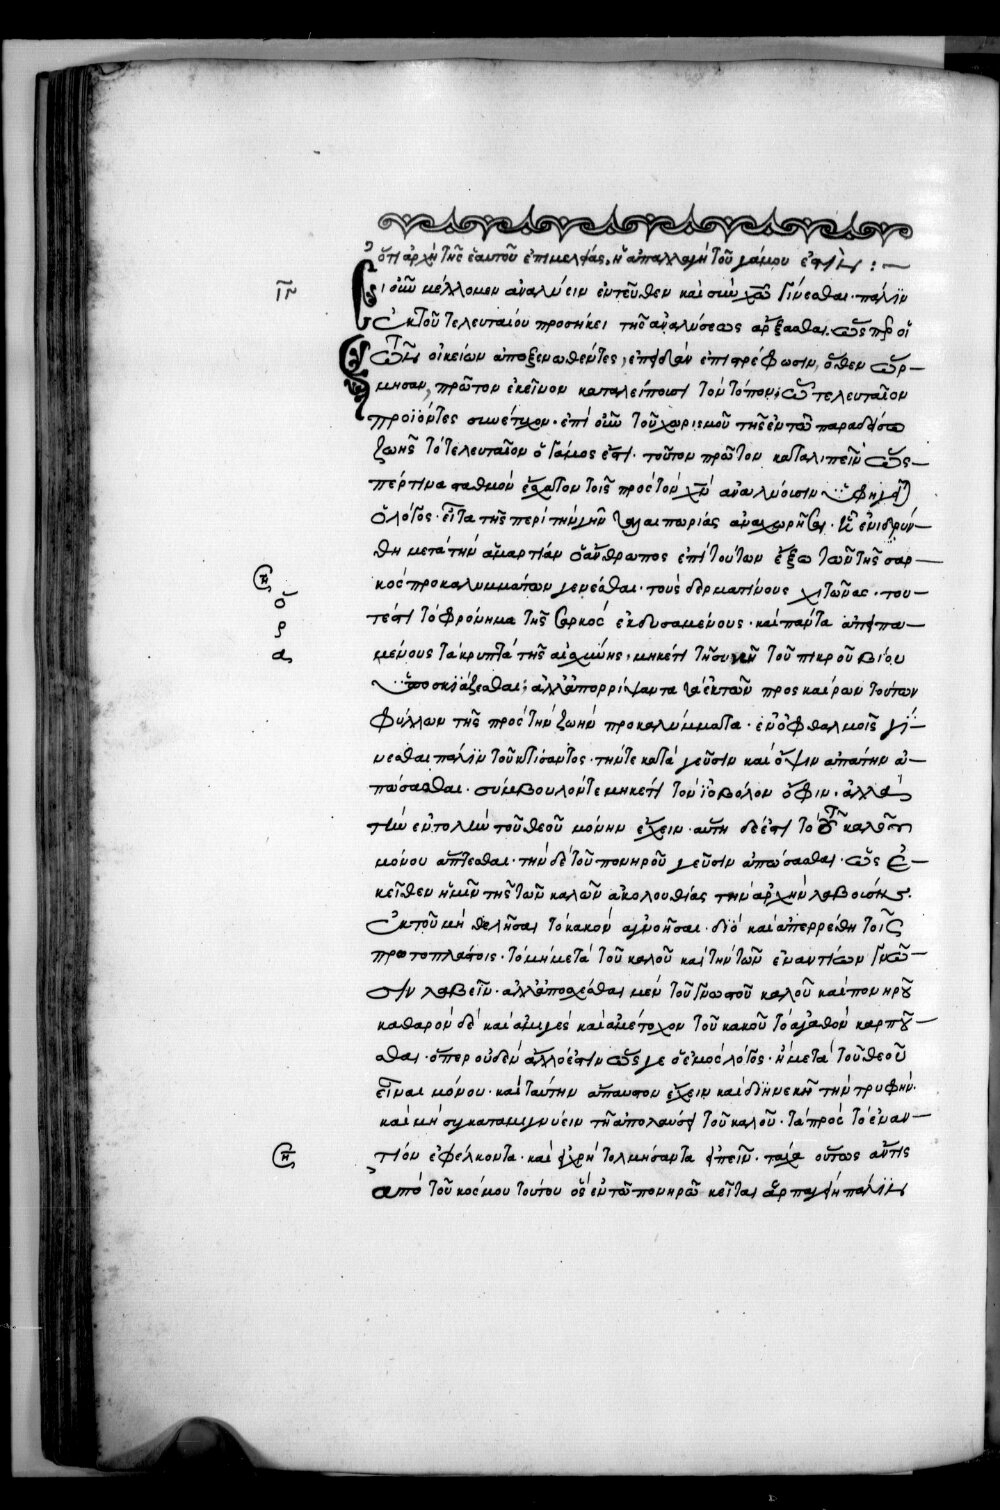 ὅτι ἀρχὴ τῆς ἑαυτοῦ ἐπιμελείας, ἡ ἀπαλλαγὴ τοῦ γάμου ἐστίν :—
ιγ
Εἰ οὖν μέλλομεν ἀναλύειν ἐντεῦθεν καὶ σὺν χῶ γίνεσθαι· πάλιν
ἐκ τοῦ τελευταίου προσήκει τῆς ἀναλύσεως ἄρξασθαι. ὥσπερ οἱ
τῶν οἰκείων ἀποξενωθέντες, ἐπειδὰν ἐπιστρέφωσιν, ὅθεν ὥρ-
μησαν, πρῶτον ἐκεῖνον καταλείπουσι τὸν τόπον· ὧ τελευταῖον
προϊόντες συνέτυχον· ἐπεὶ οὖν τοῦ χωρισμοῦ τῆς ἐν τῶ παραδείσω
ζωῆς τὸ τελευταῖον ὁ γάμος ἐστί· τοῦτον πρῶτον καταλιπεῖν ὥσ-
περ τινα σταθμὸν ἔσχατον τοῖς πρὸς τὸν χν ἀναλύουσιν ὑφηγεῖται
ὁ λόγος· εἶτα τῆς περὶ τὴν γῆν ταλαιπωρίας ἀναχωρῆσαι· ἧ ἐνιδρύν-
θη μετὰ τὴν ἁμαρτίαν ὁ ἄνθρωπος ἐπὶ τούτων ἔξω τῶν τῆς σαρ-
κὸς προκαλυμμάτων γενέσθαι· τοὺς δερματίνους χιτῶνας· του-
ὅρα
τέστι τὸ φρόνημα τῆς σαρκὸς ἐκδυσαμένους· καὶ πάντα ἀπειπα-
μένους τὰ κρυπτὰ τῆς αἰσχύνης, μηκέτι τῆ συκῆ τοῦ πικροῦ βίου
ὑποσκιάζεσθαι, ἀλλ' ἀπορρίψαντα τὰ ἐκ τῶν προσκαίρων τούτων
φύλλων τῆς πρὸς τὴν ζωὴν προκαλύμματα· ἐν ὀφθαλμοῖς γί-
νεσθαι πάλιν τοῦ κτίσαντος· τήν τε κατὰ γεῦσιν καὶ ὄψιν ἀπάτην ἀ-
πώσασθαι· σύμβουλόν τε μηκέτι τὸν ἰοβόλον ὄφιν· ἀλλὰ
τὴν ἐντολὴν τοῦ θεοῦ μόνην ἔχειν· αὕτη δέ ἐστι τὸ τοῦ καλοῦ
μόνου ἅπτεσθαι· τὴν δὲ τοῦ πονηροῦ γεῦσιν ἀπώσασθαι· ὡς ἐ-
κεῖθεν ἡμῖν τῆς τῶν κακῶν ἀκολουθίας τὴν ἀρχὴν λαβούσης.
ἐκ τοῦ μὴ θελῆσαι τὸ κακὸν ἀγνοῆσαι· διὸ καὶ ἀπερρέθη τοῖς
πρωτοπλάστοις· τὸ μὴ μετὰ τοῦ καλοῦ καὶ τὴν τῶν ἐναντίων γνῶ-
σιν λαβεῖν· ἀλλ' ἀποσχέσθαι μὲν τοῦ γνωστοῦ καλοῦ καὶ πονηροῦ
καθαρὸν δὲ καὶ ἀμιγὲς καὶ ἀμέτοχον τοῦ κακοῦ τὸ ἀγαθὸν καρποῦ-
σθαι· ὅπερ οὐδὲν ἄλλο ἐστὶν ὥς γε ὁ ἐμὸς λόγος· ἢ μετὰ τοῦ θεοῦ
εἶναι μόνου· καὶ ταύτην ἄπαυστον ἔχειν καὶ διηνεκῆ τὴν τρυφήν·
καὶ μὴ συγκαταμιγνύειν τῆ ἀπολαύσει τοῦ καλοῦ· τὰ πρὸς τὸ ἐναν-
τίον ἐφέλκοντα· καὶ εἰ χρὴ τολμήσαντα εἰπεῖν· τάχα οὕτως ἄν τις
ἀπὸ τοῦ κόσμου τούτου ὃς ἐν τῶ πονηρῶ κεῖται ἁρπαγείη πάλιν